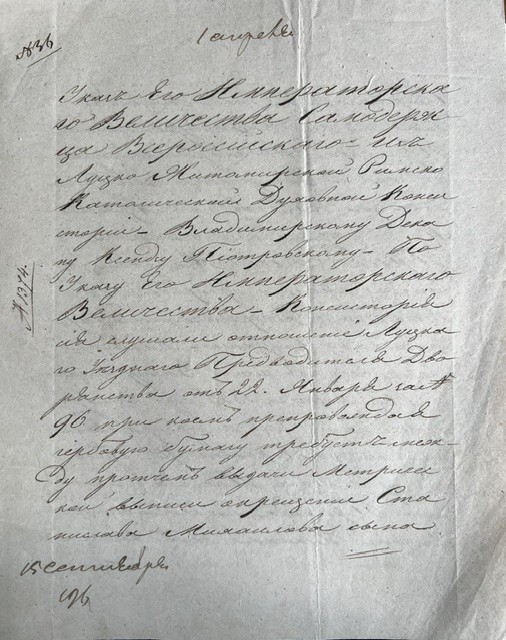 №36
1 апреля
Указъ Его Императорска
го Величества Самодерж
ца Всероссійскаго изъ
Луцко Житомирской Римско
Католической Духовной Конси
сторіи Владимирскому Дека
ну Ксендзу Піотровскому По
Указу Его Императорскаго
Величества Консисторія
сія слушали отношеніе Луцка
го Уезднаго Предводителя Дво
рянства отъ 22. Января за №
96 при коемъ препровождая
гербовую бумагу требуетъ между
ду протчемъ выдачи Метричес
кой выписи о крещеніи Ста
нислава Михаилова сына
№ 1374.
15 Сентября